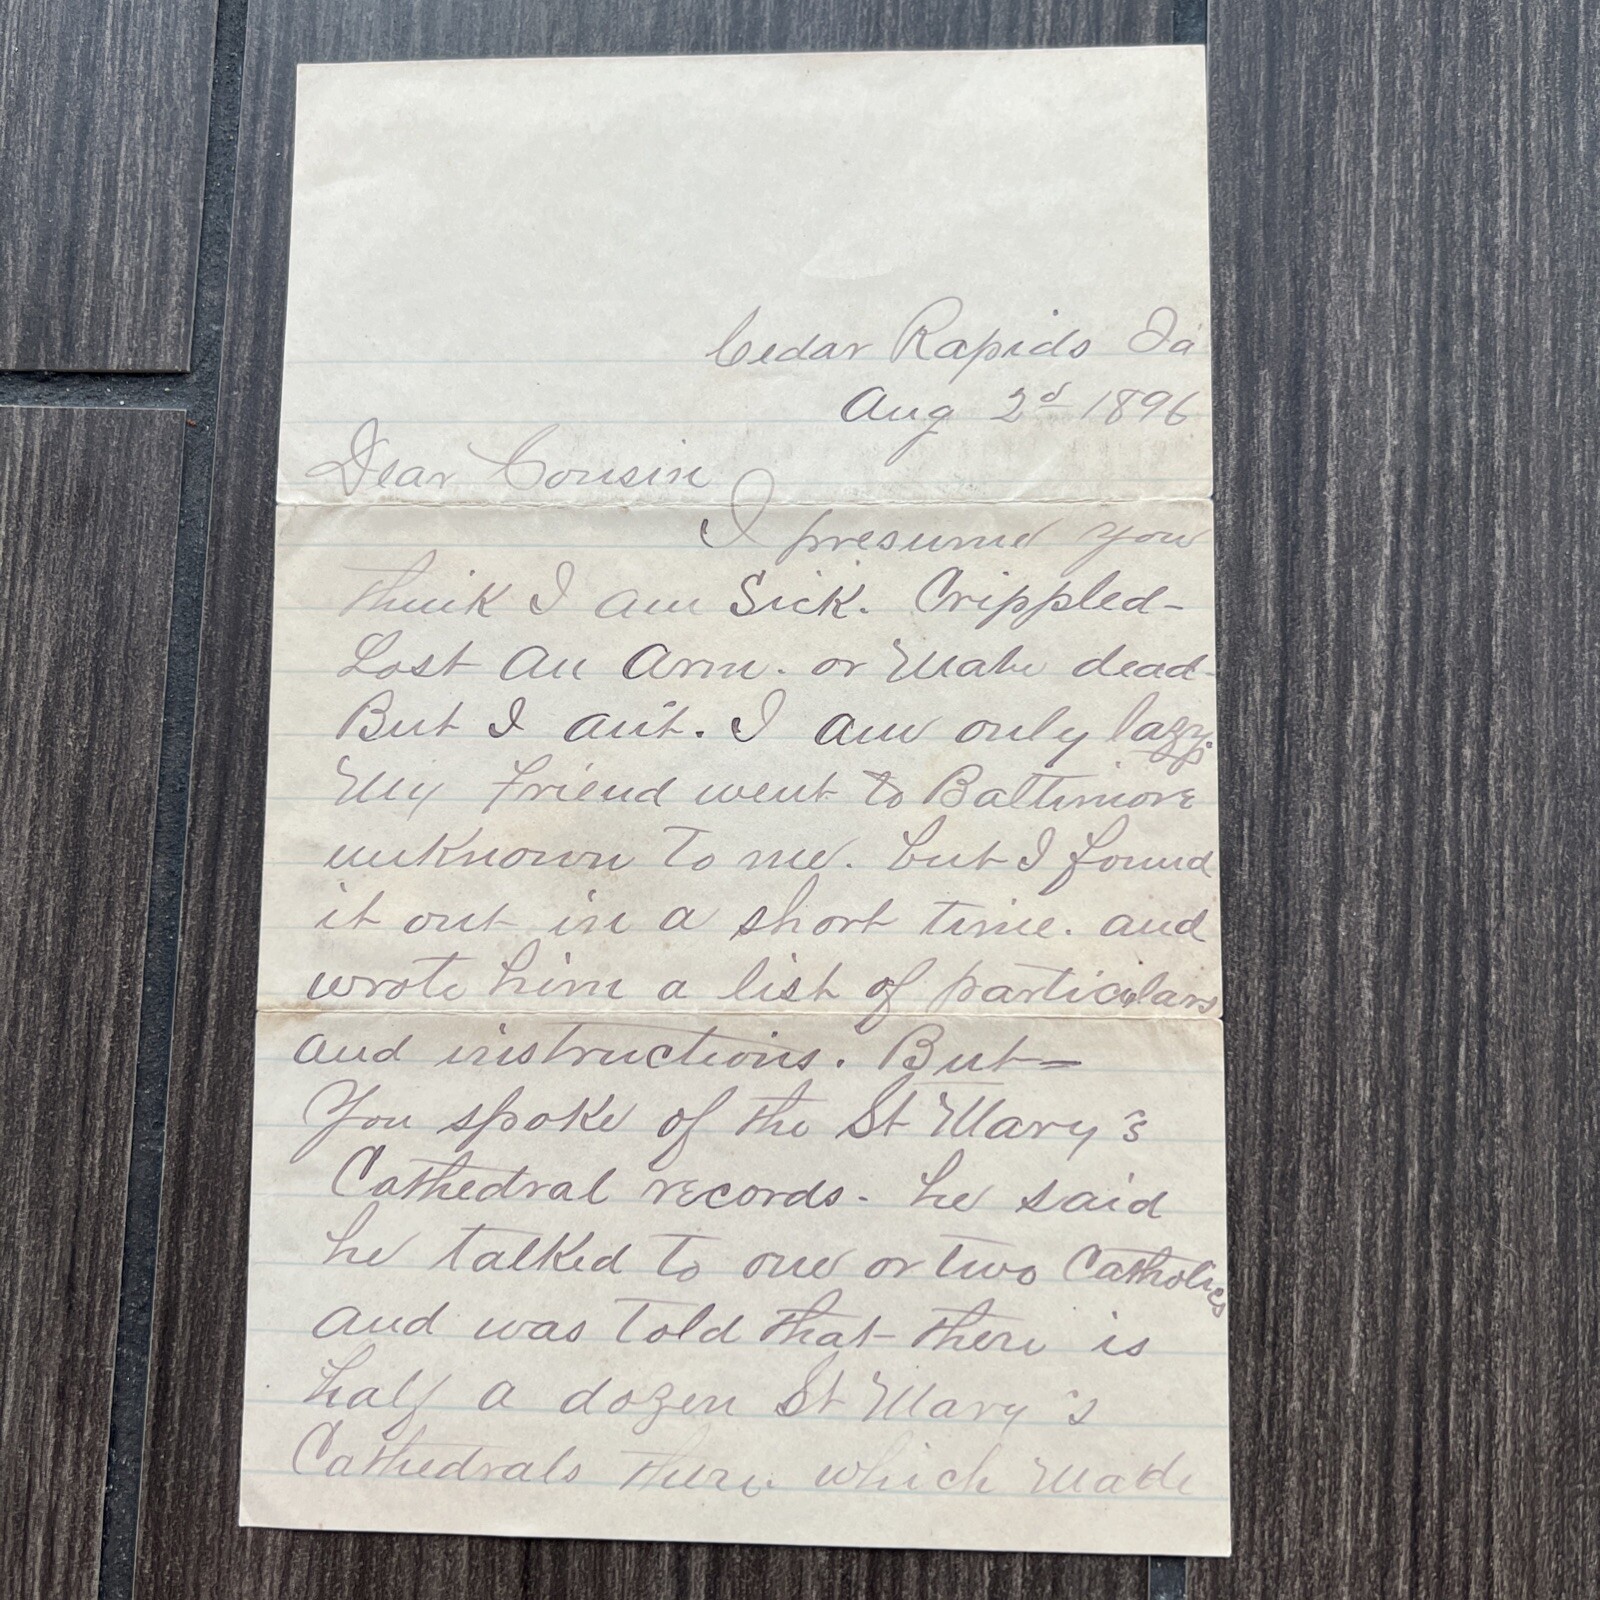 Cedar Rapids Ia
Aug 2d 1896
Dear Cousin
I presume you
think I am Sick. Crippled-
Lost An Arm. or dead-
But I ain't. I am only lazy.
My friend went to Baltimore
unknown to me. but I found
it out in a short time. and
wrote him a list of particulars
and instructions. But=
You spoke of the St Mary's
Cathedral records. he said
he talked to one or two Catholics
and was told that there is
half a dozen St Mary's
Cathedrals there which made